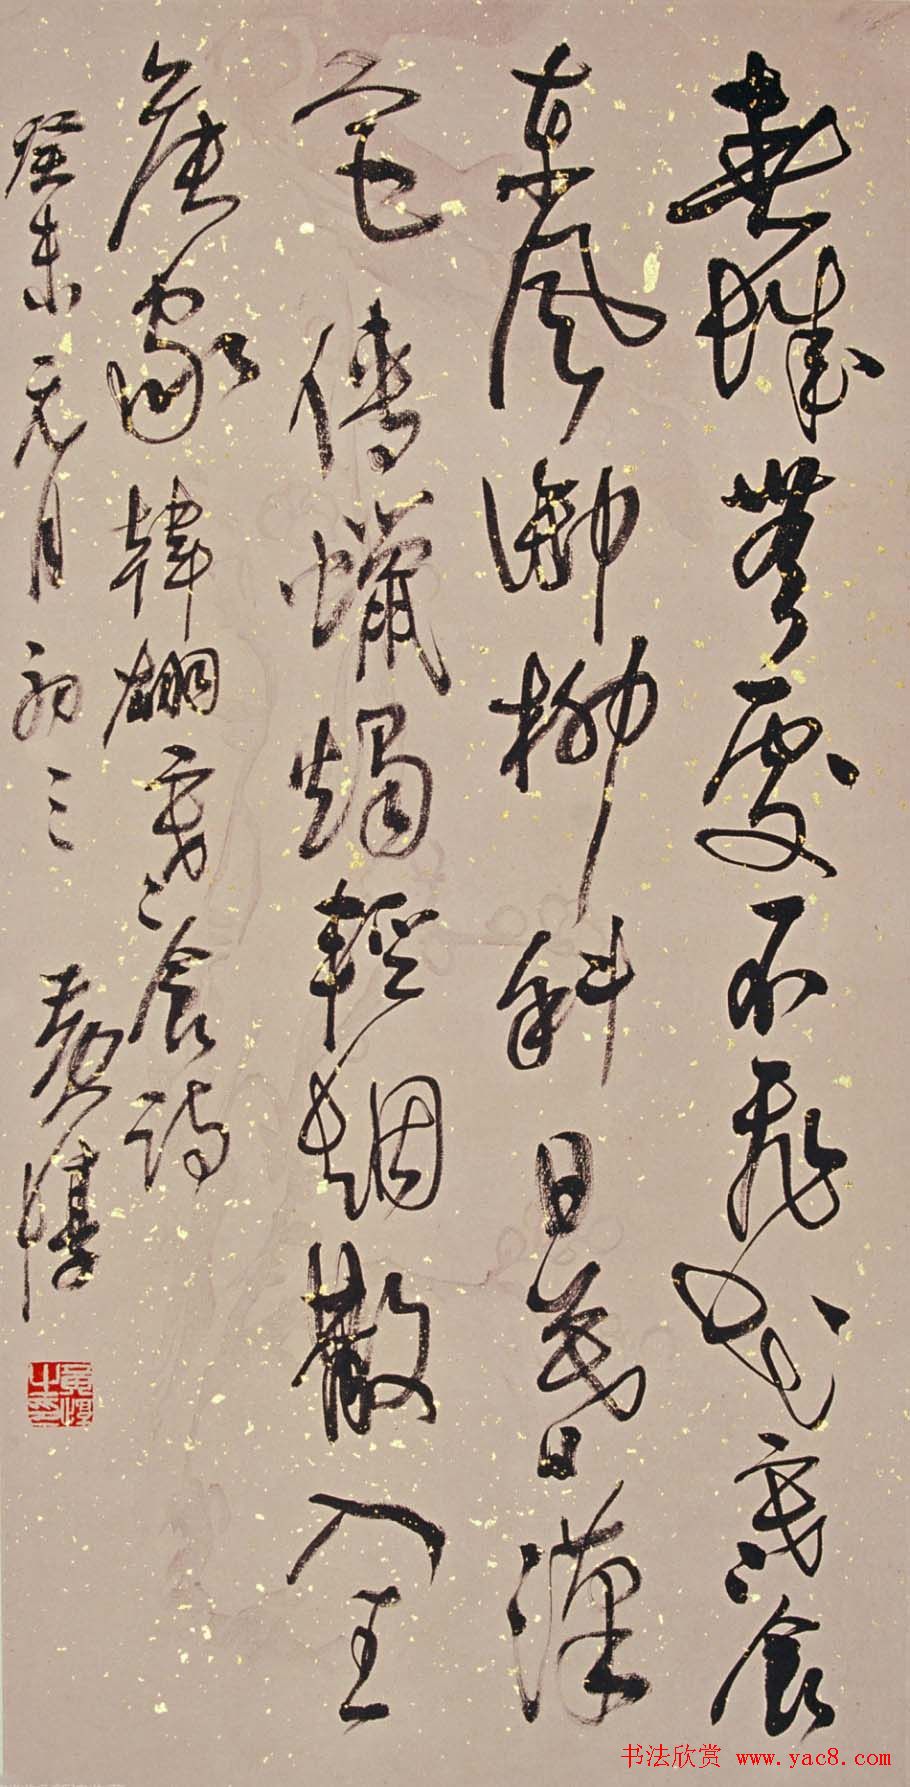 春城無處不飛花寒食
東風御柳斜日暮漢
宮傳蠟燭輕烟散入五
侯家韓翃寒食詩
癸未元月初三 黄惇
黄惇之
书法欣赏 www.yac8.com